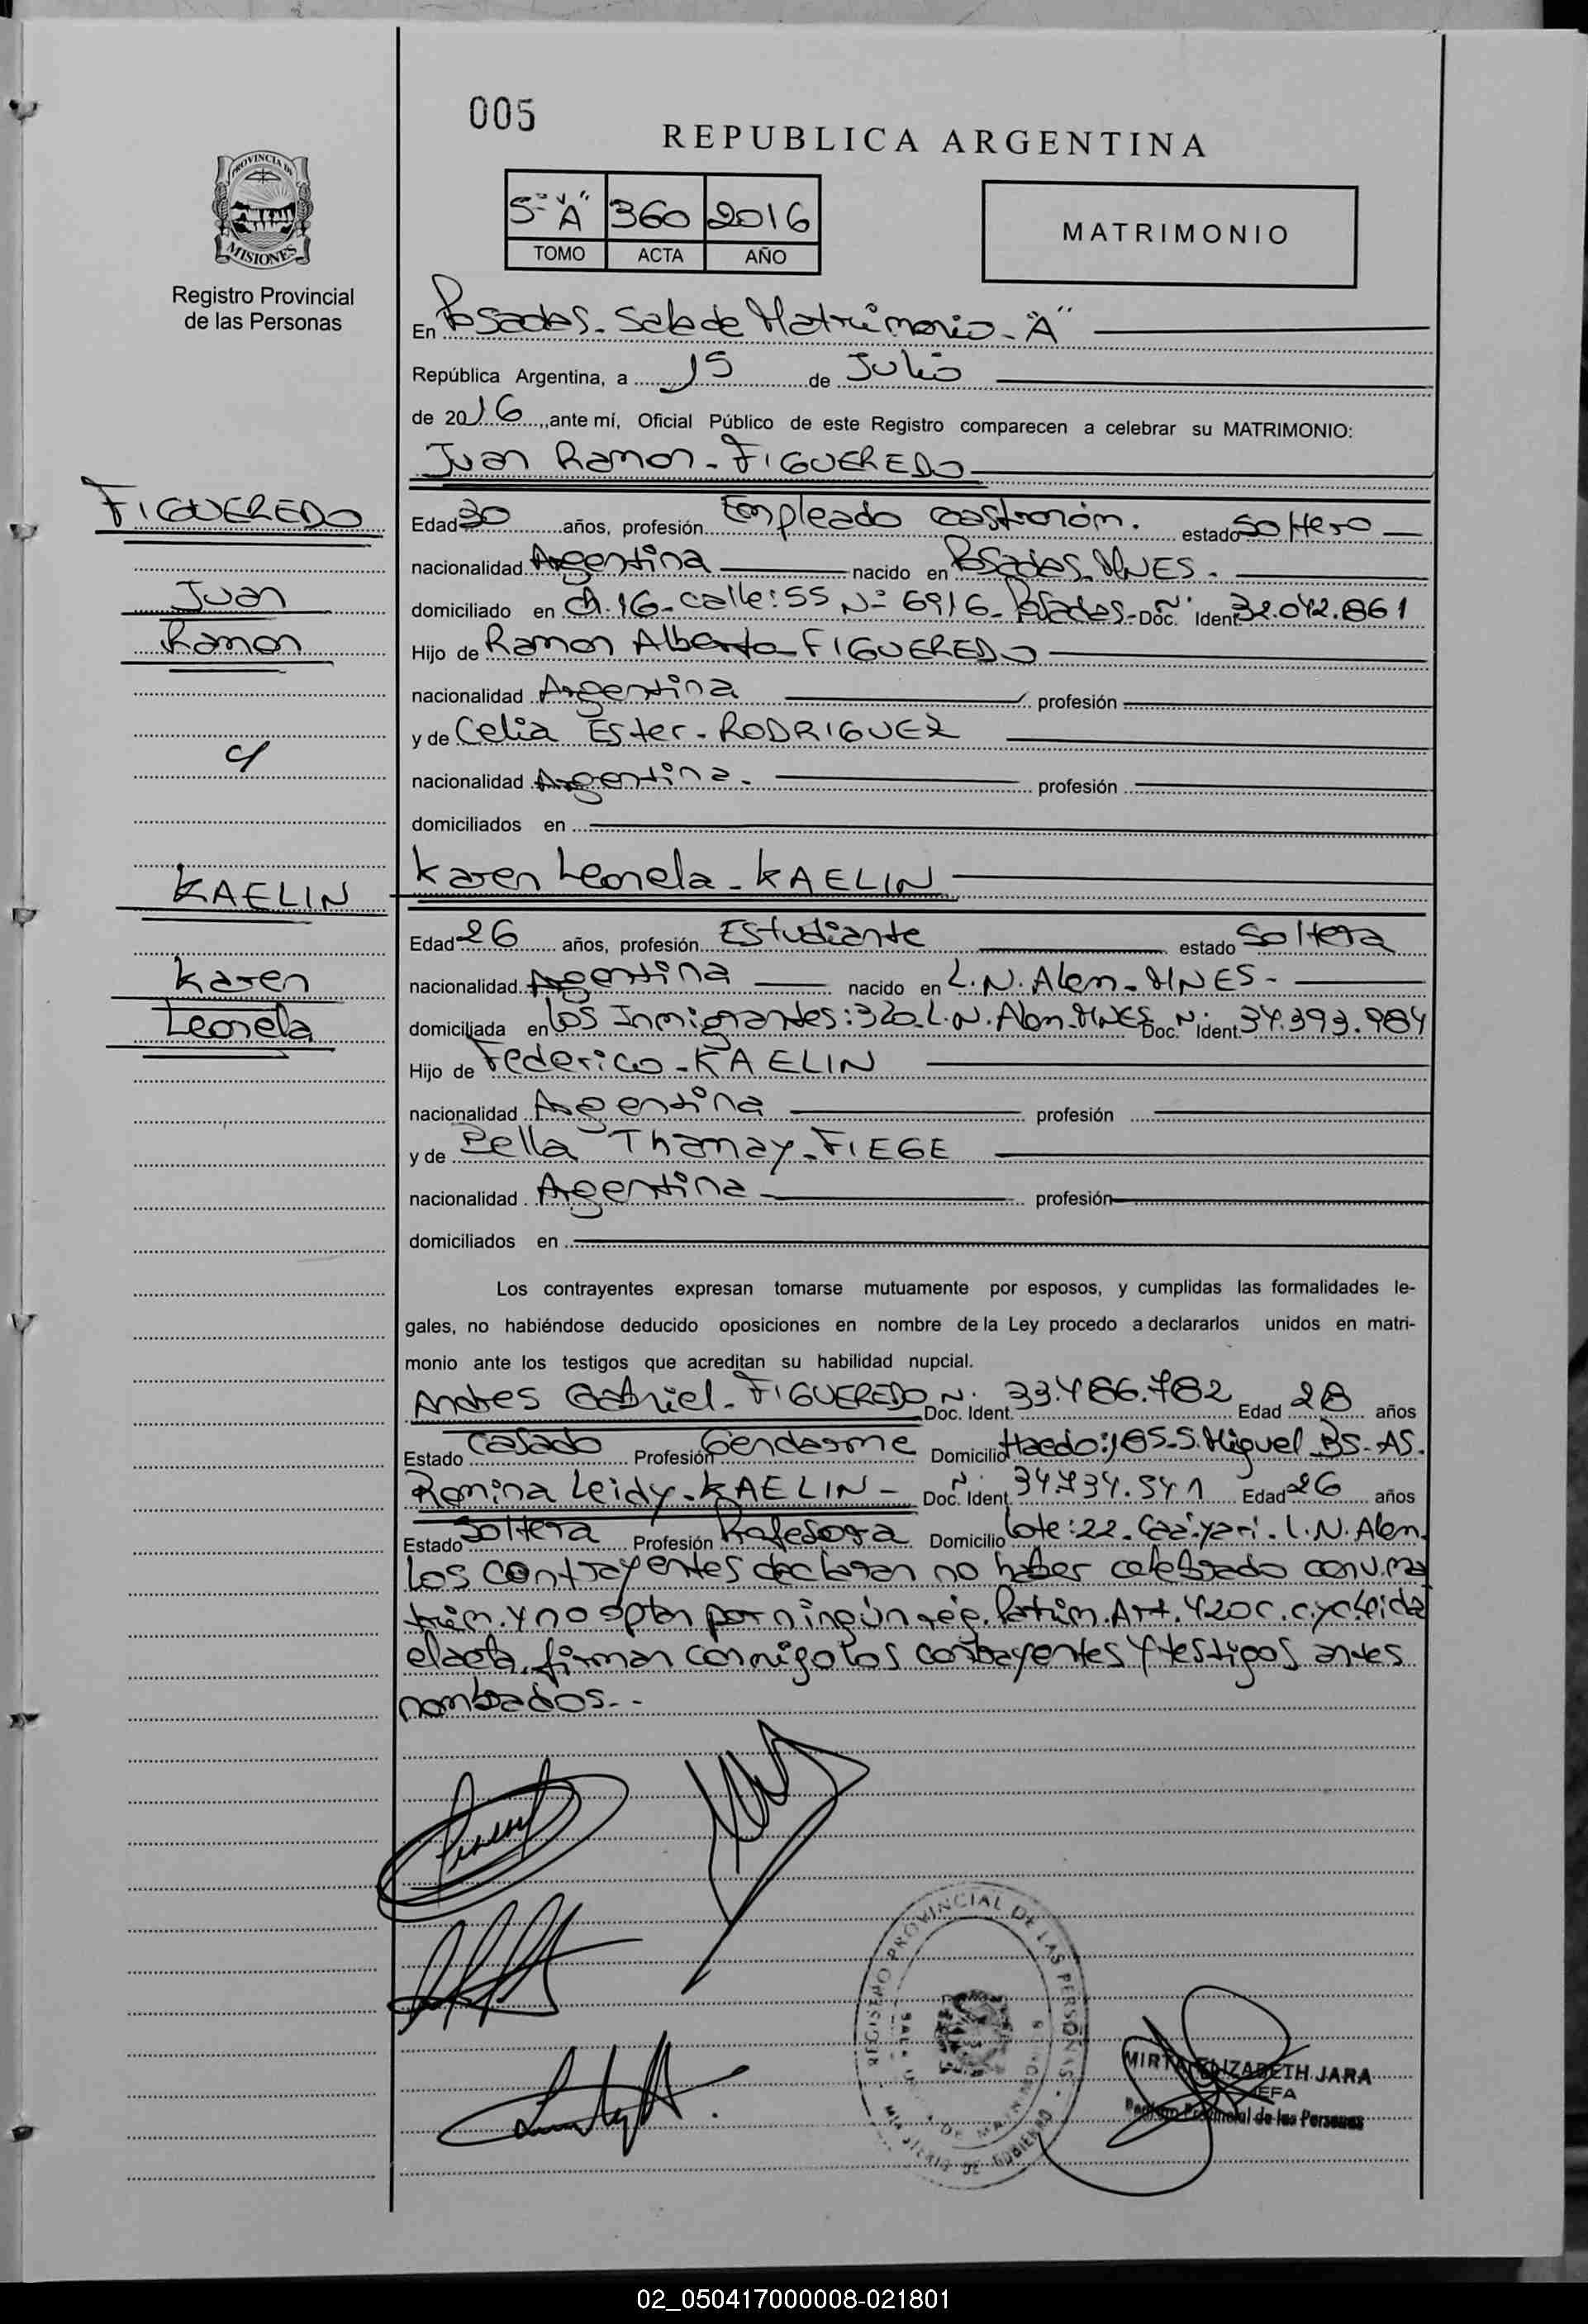 005
REPUBLICA ARGENTINA
PROVINCIA DE
MISIONES
Registro Provincial
de las Personas
5º "A" 360 2016
TOMO ACTA AÑO
MATRIMONIO
En Posadas - Sala de Matrimonio - "A"
República Argentina, a 15 de Julio
de 2016, ante mí, Oficial Público de este Registro comparecen a celebrar su MATRIMONIO:
Juan Ramon - FIGUEREDO
FIGUEREDO
Juan
Ramon
c/
KAELIN
Karen
Leonela
Edad 30 años, profesión Empleado Gastronóm. estado Soltero
nacionalidad Argentina nacido en Posadas. Mnes.
domiciliado en Ch. 16 - Calle: 55 Nº 6916 - Posadas - Doc. Nº Ident 32.042.861
Hijo de Ramon Alberto FIGUEREDO
nacionalidad Argentina profesión
y de Celia Ester - RODRIGUEZ
nacionalidad Argentina. profesión
domiciliados en
Karen Leonela - KAELIN
Edad 26 años, profesión Estudiante estado Soltera
nacionalidad Argentina nacido en L. N. Alem - MNES -
domiciliada en Los Inmigrantes: 320. L. N. Alem. Mnes Doc. Nº Ident. 34.393.984
Hijo de Federico - KAELIN
nacionalidad Argentina profesión
y de Thamay - FIEGE
nacionalidad Argentina profesión
domiciliados en
Los contrayentes expresan tomarse mutuamente por esposos, y cumplidas las formalidades le-
gales, no habiéndose deducido oposiciones en nombre de la Ley procedo a declararlos unidos en matri-
monio ante los testigos que acreditan su habilidad nupcial.
Andres Gabriel - FIGUEREDO Doc. Ident. Nº 33.486.782 Edad 28 años
Estado Casado Profesión Gendarme Domicilio Haedo: 185 - S. Miguel BS-AS.
Romina Leidy - KAELIN - Doc. Ident. Nº 34.734.541 Edad 26 años
Estado Soltera Profesión Profesora Domicilio Lote: 22 - Caá-yarí - L. N. Alem.
Los contrayentes declaran no haber celebrado conv. ma
trim. y no optan por ningún rég. Patrim. Art. 420 C. c. yc. Leida
el acta, firman conmigo los contrayentes y testigos antes
nombrados.-
REGISTRO PROVINCIAL DE LAS PERSONAS
MINISTERIO DE GOBIERNO
MIRTA ELIZABETH JARA
JEFA
Registro Provincial de las Personas
02_050417000008-021801